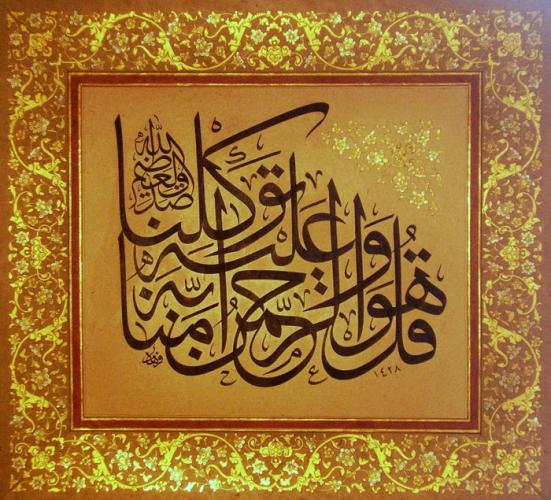 قل هو الرحمن امنا به وعليه توكلنا
صدق الله العظيم
١٤٢٨